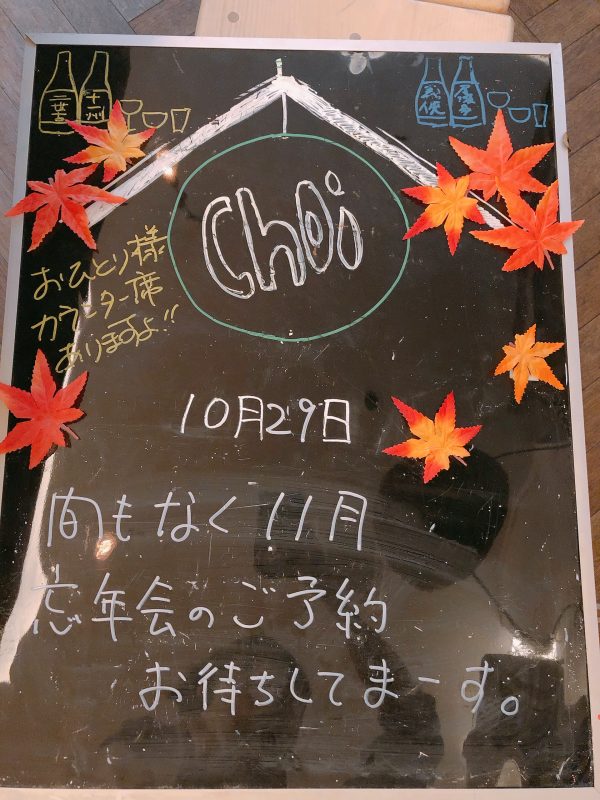 十州
Choi
おひとり様
カウンター席
ありますよ!!
10月29日
間もなく11月
忘年会のご予約
お待ちしてまーす。